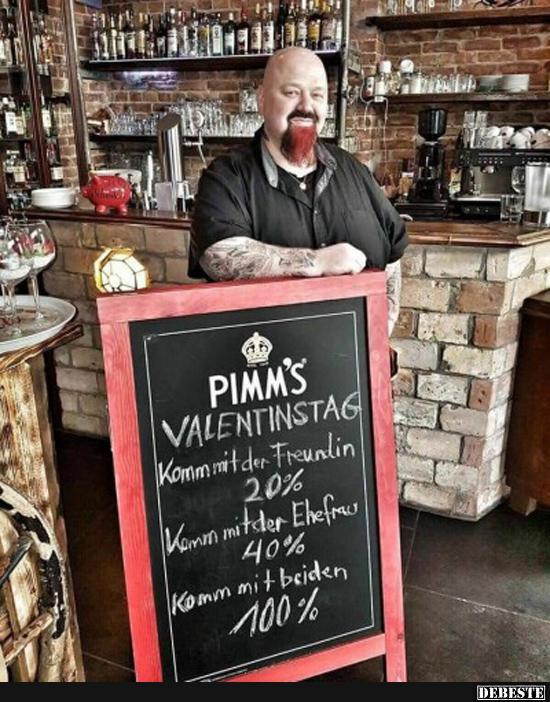 PIMM'S
VALENTINSTAG
Komm mit der Freundin
20%
Komm mit der Ehefrau
40%
Komm mit beiden
100%
DEBESTE